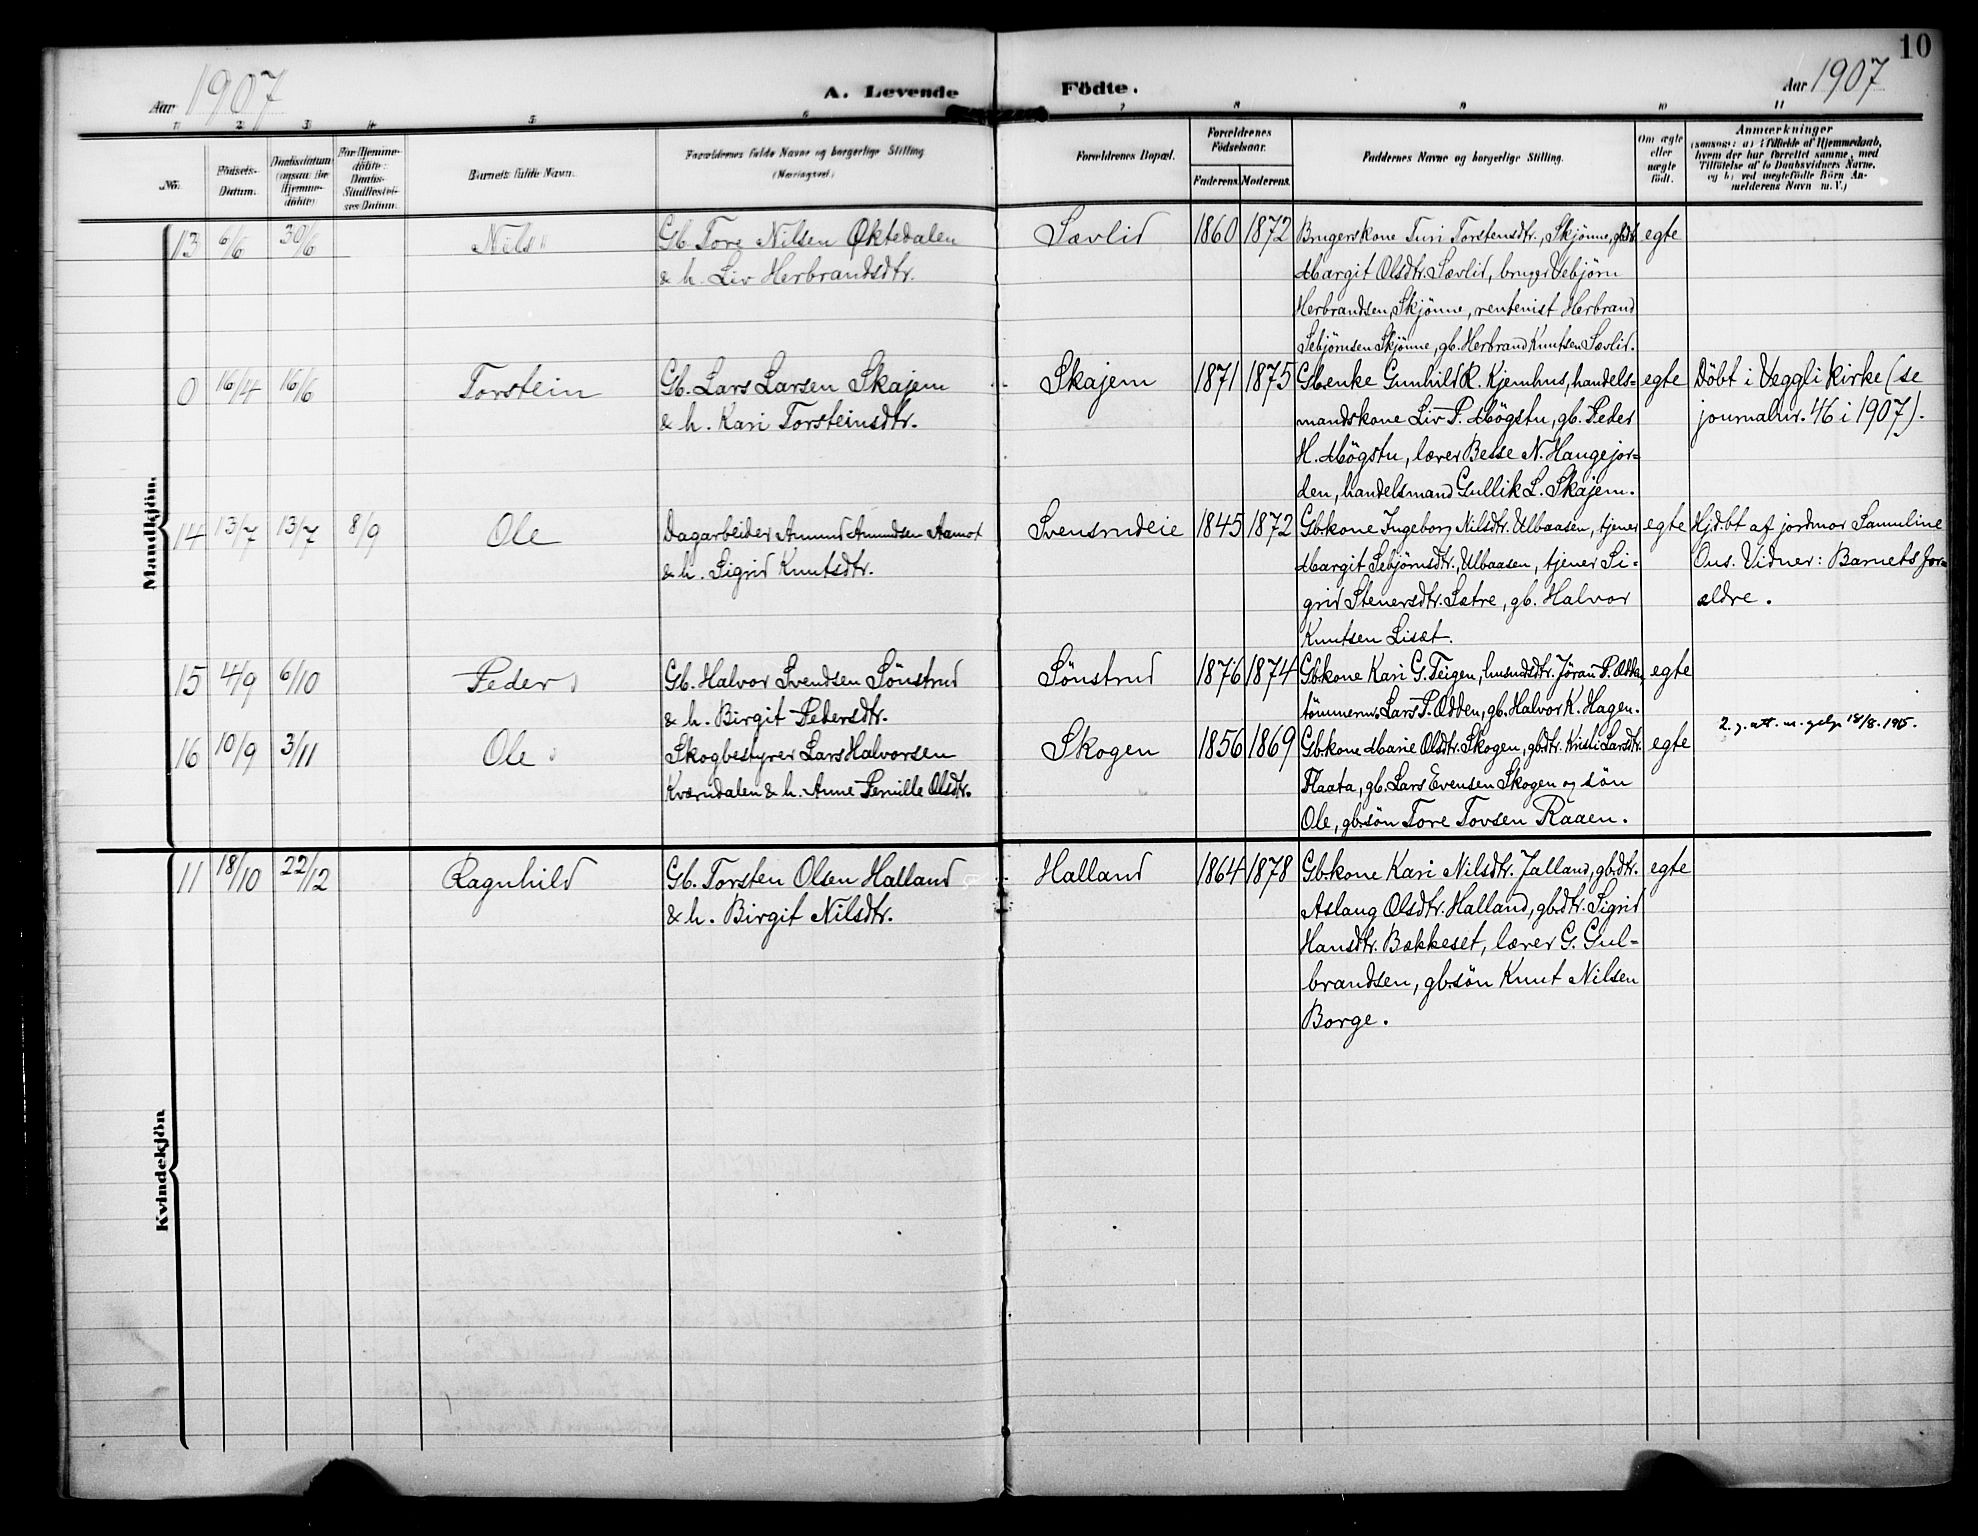 10
Aar 1907
A. Levende Födte.
Aar 1907
1 2 3 4 5 6 7 8 9 10 11
No.
Födsels-Datum.
Daabsdatum (ogsaa for Hjemme-döbte)
For Hjemme-döbte: Daabs-Stadfæstel-ses-Datum.
Barnets fulde Navn.
Forældrenes fulde Navne og borgerlige Stilling
(Næringsvei.)
Forældrenes Bopæl.
Forældrenes Födselsaar.
Faderens. Moderens.
Faddernes Navne og borgerlige Stilling.
Om ægte eller uægte födt.
Anmærkninger
(saasom: a) i tilfælde af Hjemmedaab,
hvem der har forrettet samme, med
Tilföielse af to Daabsvidners Navne,
og b) ved uægtefödte Börn An-
melderens Navn m. V.)
Mandkjön.
13 6/6 30/6 Nils Gb. Tore Nilsen Öktedalen Sævlid 1860 1872 Brugerskone Turi Torstensdtr., Skjönne, gbdtr. egte
& h. Liv Herbrandsdtr. Margit Olsdtr. Sævlid, bruger Sebjörn
Herbrandsen, Skjönne, rentenist Herbrand
Sebjörnsen Skjönne, gb. Herbrand Knutsen Sævlid.
0 16/4 16/6 Torstein Gb. Lars Larsen Skajem Skajem 1871 1875 Gb.enke Gunhild R. Kjemhus, handels- egte Döbt i Veggli kirke (se
& h. Kari Torsteinsdtr. mandskone Liv P. Mögstu, gb. Peder journalnr. 46 i 1907).
H. Mögstu, lærer Besse N. Haugejor-
den, handelsmand Gullik L. Skajem.
14 13/7 13/7 8/9 Ole Dagarbeider Amund Amundsen Aamot Svensrudeie 1845 1872 Gbkone Ingeborg Nilsdtr. Ulbaasen, tjener egte Hjdbt af jordmor Samuline
& h. Sigrid Knutsdtr. Margit Sebjörnsdtr., Ulbaasen, tjener Si- Ous. Vidner: Barnets for-
grid Stenersdtr. Sætre, gb. Halvor ældre.
Knutsen Lisæt.
15 4/9 6/10 Peder Gb. Halvor Svendsen Sönstrud Sönstrud 1876 1874 Gbkone Kari G. Teigen, husmdsdtr. Jöran P. egte
& h. Birgit Pedersdtr. tömmerm. Lars P. Odden, gb. Halvor K. Hagen.
2. g. att. m. 18/8. 1915.
16 10/9 3/11 Ole Skogbestyrer Lars Halvorsen Skogen 1856 1869 Gbkone Marie Olsdtr. Skogen, gbdtr. Kristi Larsdtr. egte
Kværndalen & h. Anne Pernille Olsdtr. Flaata, gb. Lars Evensen Skogen og sön
Ole, gb.sön Tore Tovsen Raaen.
Kvindekjön
11 18/10 22/12 Ragnhild Gb. Torsten Olsen Halland Halland 1864 1878 Gbkone Kari Nilsdtr. Jalland, gb.dtr. egte
& h. Birgit Nilsdtr. Aslaug Olsdtr. Halland, gbdtr. Sigrid
Hansdtr. Bækkeset, lærer G. Gul-
brandsen, gbsön Knut Nilsen
Borge.